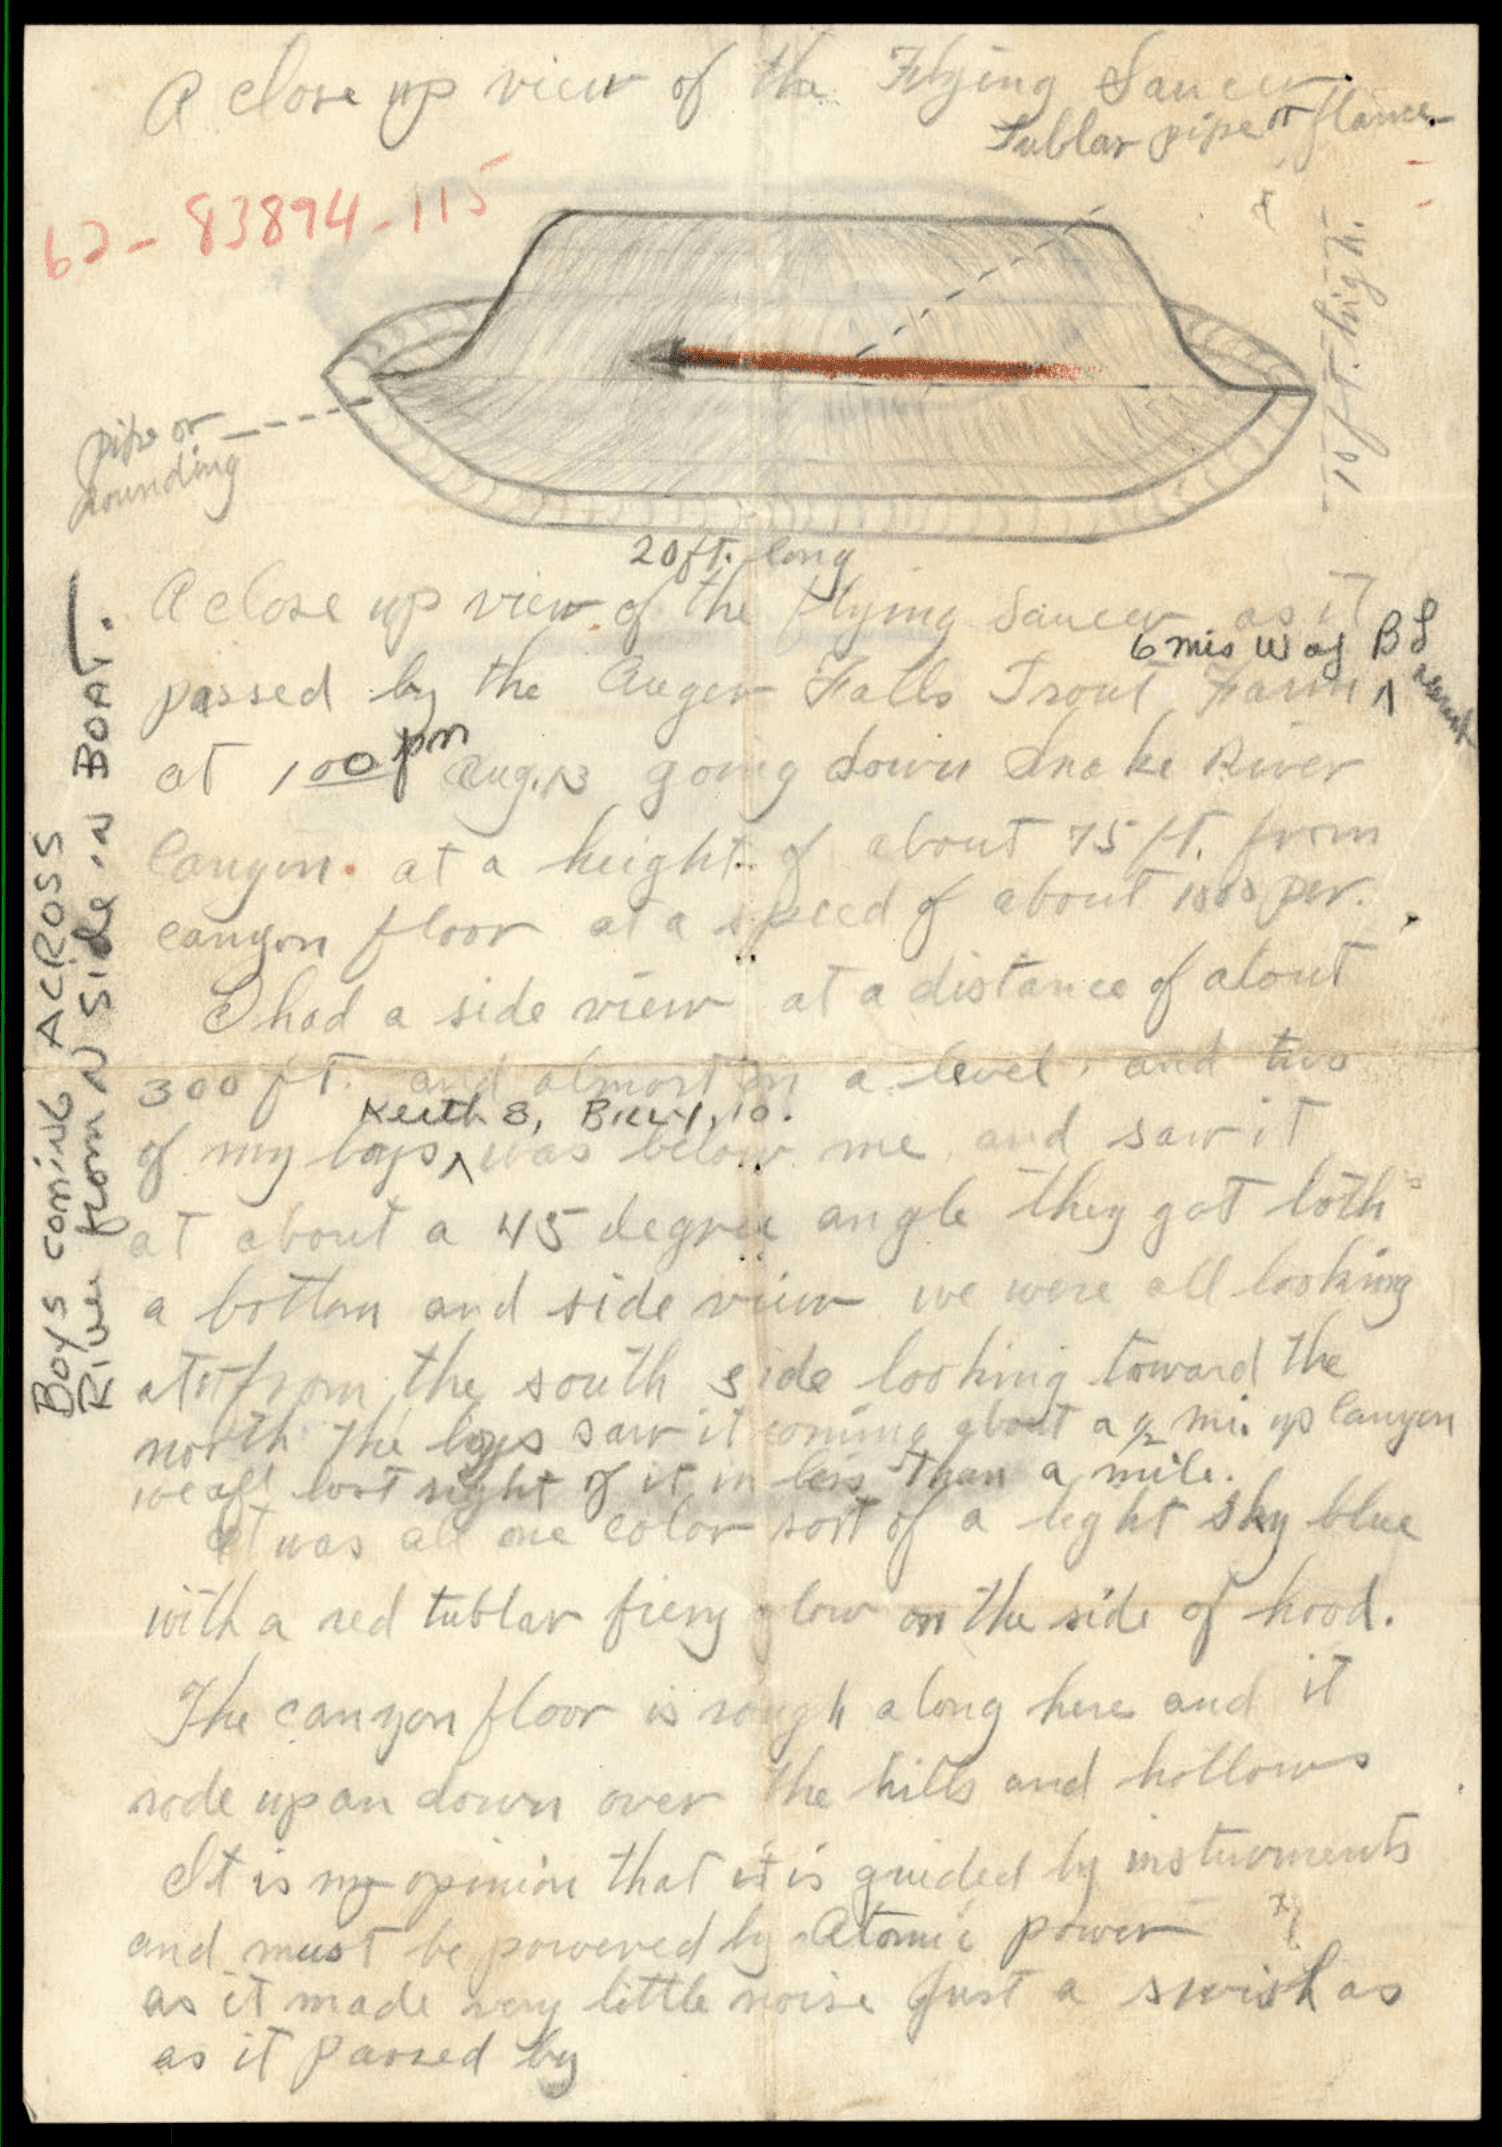 A close up view of the Flying Saucer.
Tublar pipe or flame
62-83894-115
10 ft. high.
pipe or
rounding
20 ft. long
A close up view of the flying Saucer as it
6 mis W of B L
passed by the Auger Falls Trout Farm ^
at 1 00 pm Aug. 13 going down Snake River
Canyon. at a height of about 75 ft. from
canyon floor at a speed of about per.
I had a side view at a distance of about
300 ft. and almost on a level. and two
Keith 8, Billy, 10.
of my boys ^ was below me and saw it
at about a 45 degree angle they got both
a bottom and side view we were all looking
at it from the south side looking toward the
north the boys saw it coming about a 1/2 mi. up Canyon
we all lost sight of it in less than a mile.
It was all one color sort of a light sky blue
with a red tublar fiery glow on the side of hood.
The canyon floor is rough along here and it
rode up an down over the hills and hollows
It is my opinion that it is guided by insturments
and must be powered by Atomic power
as it made very little noise just a swish as
as it passed by
Boys coming ACROSS
River from N Side in BOAT.